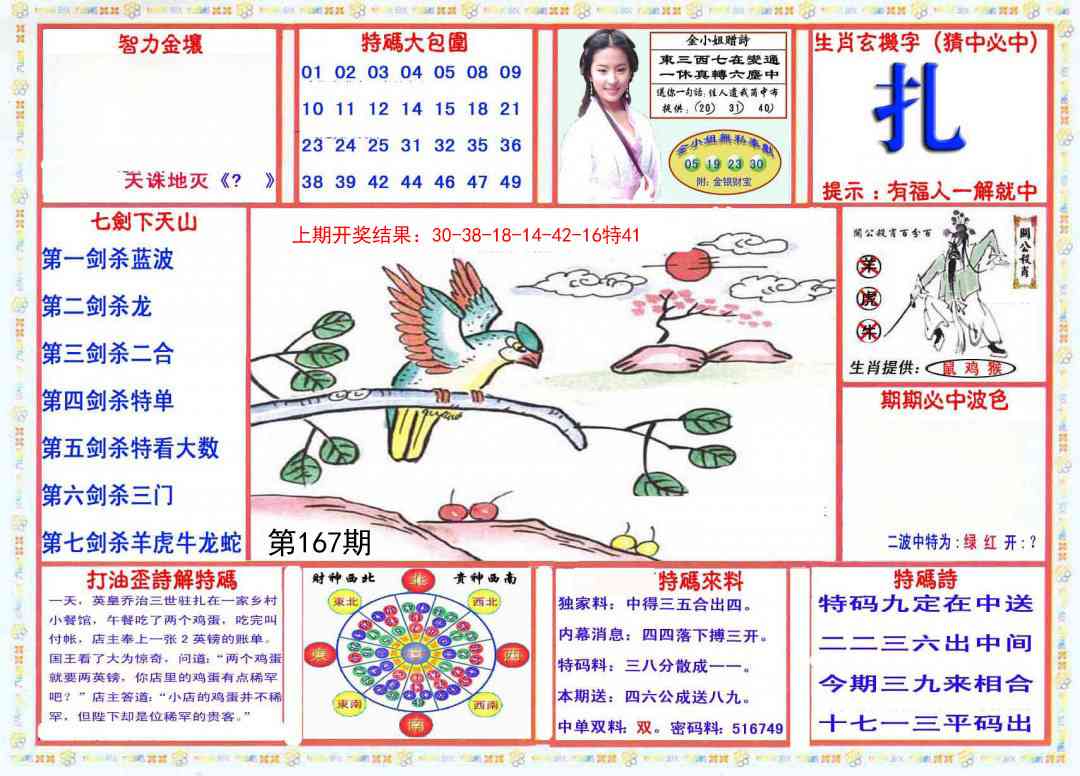 智力金壤
天诛地灭《? 》
特碼大包圍
01 02 03 04 05 08 09
10 11 12 14 15 18 21
23 24 25 31 32 35 36
38 39 42 44 46 47 49
金小姐贈詩
東三西七在變通
一休真轉六塵中
送你一句话,佳人遺我萬中布
提供:(20) 31) 40)
金小姐無私奉献
05 19 23 30
附:金银财宝
生肖玄機字(猜中必中)
扎
提示:有福人一解就中
七劍下天山
第一剑杀蓝波
第二剑杀龙
第三剑杀二合
第四剑杀特单
第五剑杀特看大数
第六剑杀三门
第七剑杀羊虎牛龙蛇
上期开奖结果:30-38-18-14-42-16特41
第167期
關公殺肖百分百
關公殺肖
羊
虎
牛
生肖提供:鼠 鸡 猴
期期必中波色
二波中特为:绿 红 开:?
打油歪詩解特碼
一天,英皇乔治三世驻扎在一家乡村
小餐馆,午餐吃了两个鸡蛋,吃完叫
付帐,店主奉上一张2英镑的账单。
国王看了大为惊奇,问道:“两个鸡蛋
就要两英镑,你店里的鸡蛋有点稀罕
吧?”店主答道:“小店的鸡蛋并不稀
罕,但陛下却是位稀罕的贵客。”
財神西北 貴神西南
北
東北 西北
西
東南 西南
南
特碼來料
独家料:中得三五合出四。
内幕消息:四四落下搏三开。
特码料:三八分散成一一。
本期送:四六公成送八九。
中单双料:双。密码料:516749
特碼詩
特码九定在中送
二二三六出中间
今期三九来相合
十七一三平码出